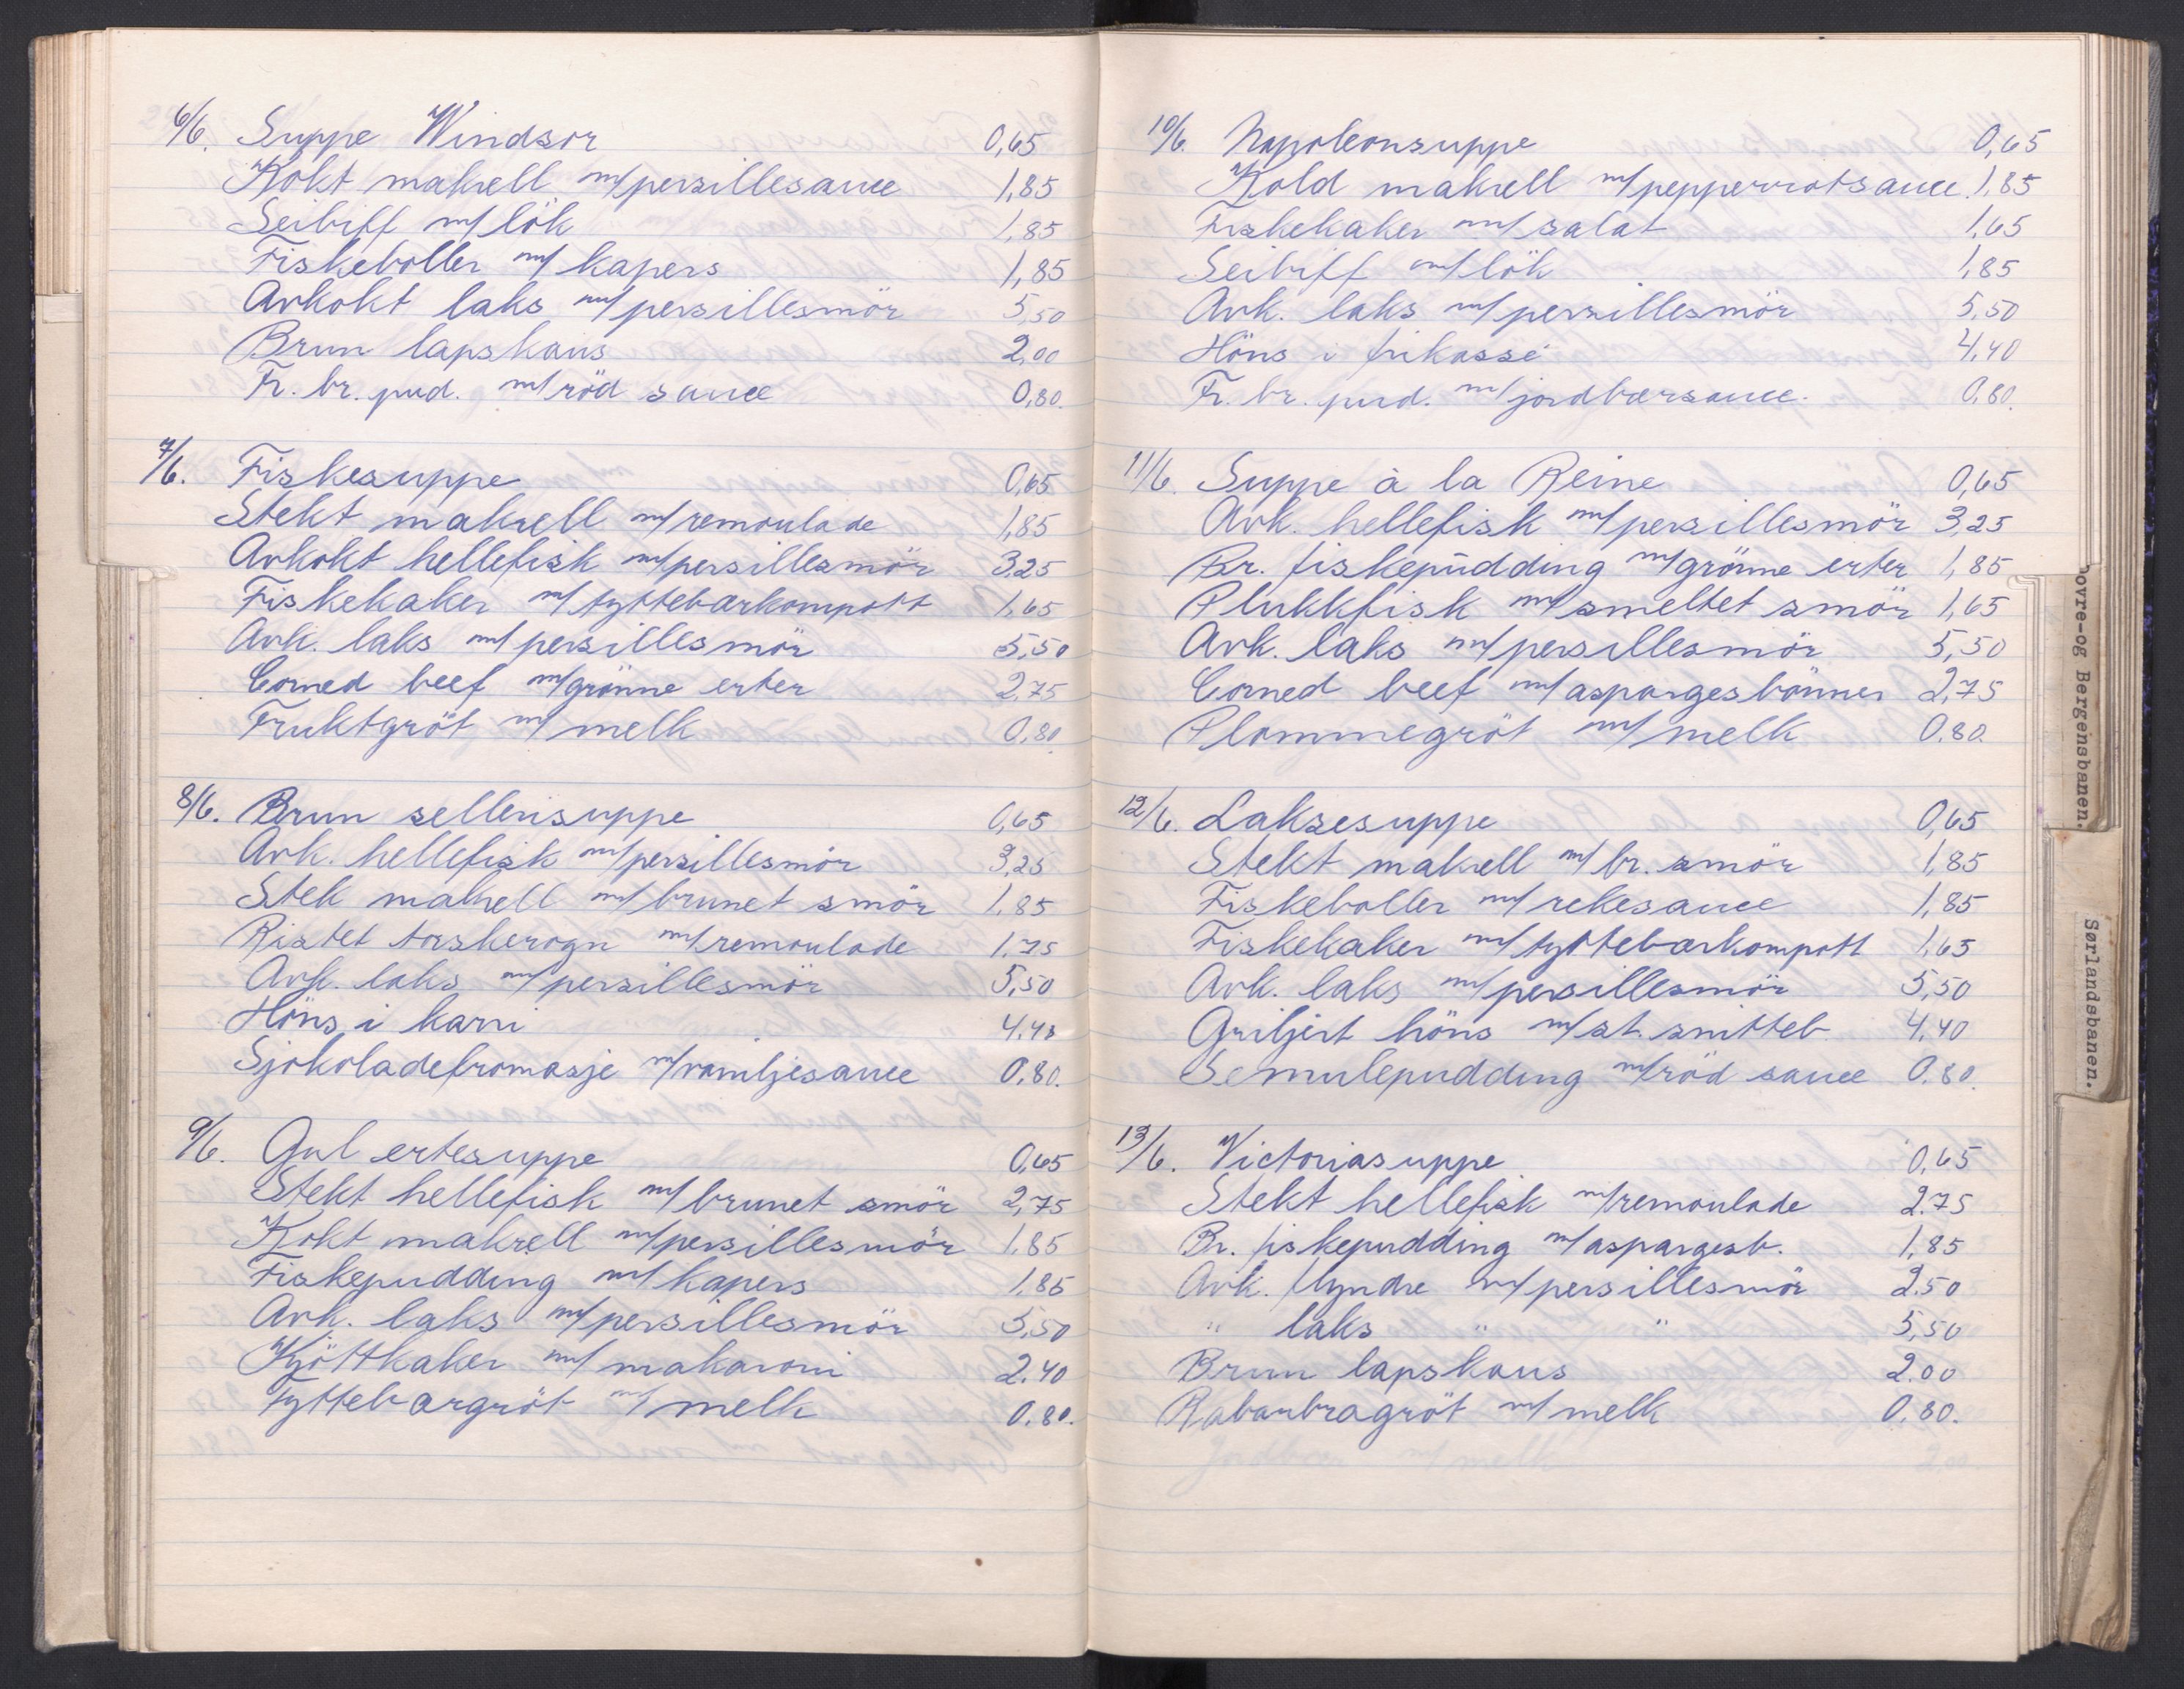 6/6. Suppe Windsor 0,65
Kokt makrell m/persillesauce 1,85
Seibiff m/lök 1,85
Fiskeboller m/ kapers 1,85
Avkokt laks m/persillesmör 5,50
Brun lapskaus 2,00
Fr. br. pud. m/röd sauce 0,80.
7/6. Fiskesuppe 0,65
Stekt makrell m/remoulade 1,85
Avkokt hellefisk m/persillesmör 3,25
Fiskekaker m/tyttebærkompott 1,65
Avk. laks m/persillesmör 5,50
Corned beef m/grønne erter 2,75
Fruktgröt m/ melk 0,80
8/6. Brun sellerisuppe 0,65
Avk. hellefisk m/persillesmör 3,25
Stek makrell m/brunet smör 1,85
Ristet torskerogn m/remoulade 1.75
Avk. laks m/persillesmör 5,50
Höns i karri 4,40
Sjokoladefromasje m/vaniljesauce 0,80.
9/6. Gul ertesuppe 0,65
Stekt hellefisk m/brunet smör 2,75
Kokt makrell m/persillesmör 1,85
Fiskepudding m/kapers 1,85
Avk. laks m/persillesmör 5,50
Kjöttkaker m/ makaroni 2.40
Tyttebærgröt m/ melk 0.80.
10/6. Napoleonsuppe 0,65
Kold makrell m/pepperrotsauce. 1,85
Fiskekaker m/salat 1,65
Seibiff m/lök 1,85
Avk. laks m/persillesmör 5,50
Höns i frikassé 4,40
Fr. br. pud. m/jordbærsauce. 0,80.
11/6. Suppe à la Reine 0,65
Avk. hellefisk m/persillesmör 3,25
Br. fiskepudding m/grönne erter 1,85
Plukkfisk m/smeltet smör 1,65
Avk. laks m/persillesmör 5,50
Corned beef m/aspargesbönner 2,75
Plommegröt m/melk 0.80.
12/6. Laksesuppe 0,65
Stekt makrell m/ br. smör 1,85
Fiskeboller m/rekesauce 1,85
Fiskekaker m/tyttebærkompott 1,65
Avk. laks m/persillesmör 5,50
Griljert höns m/st. snitteb. 4,40
Semulepudding m/röd sauce 0.80.
13/6. Victoriasuppe 0,65
Stekt hellefisk m/remoulade 2.75
Br. fiskepudding m/aspargesb. 1,85
Avk. flyndre m/persillesmör 2.50
" laks " " 5,50
Brun lapskaus 2.00
Rabarbragröt m/melk 0.80.
Jordbær m/ melk 2,00
ovre-og Bergensbanen.
Sørlandsbanen.